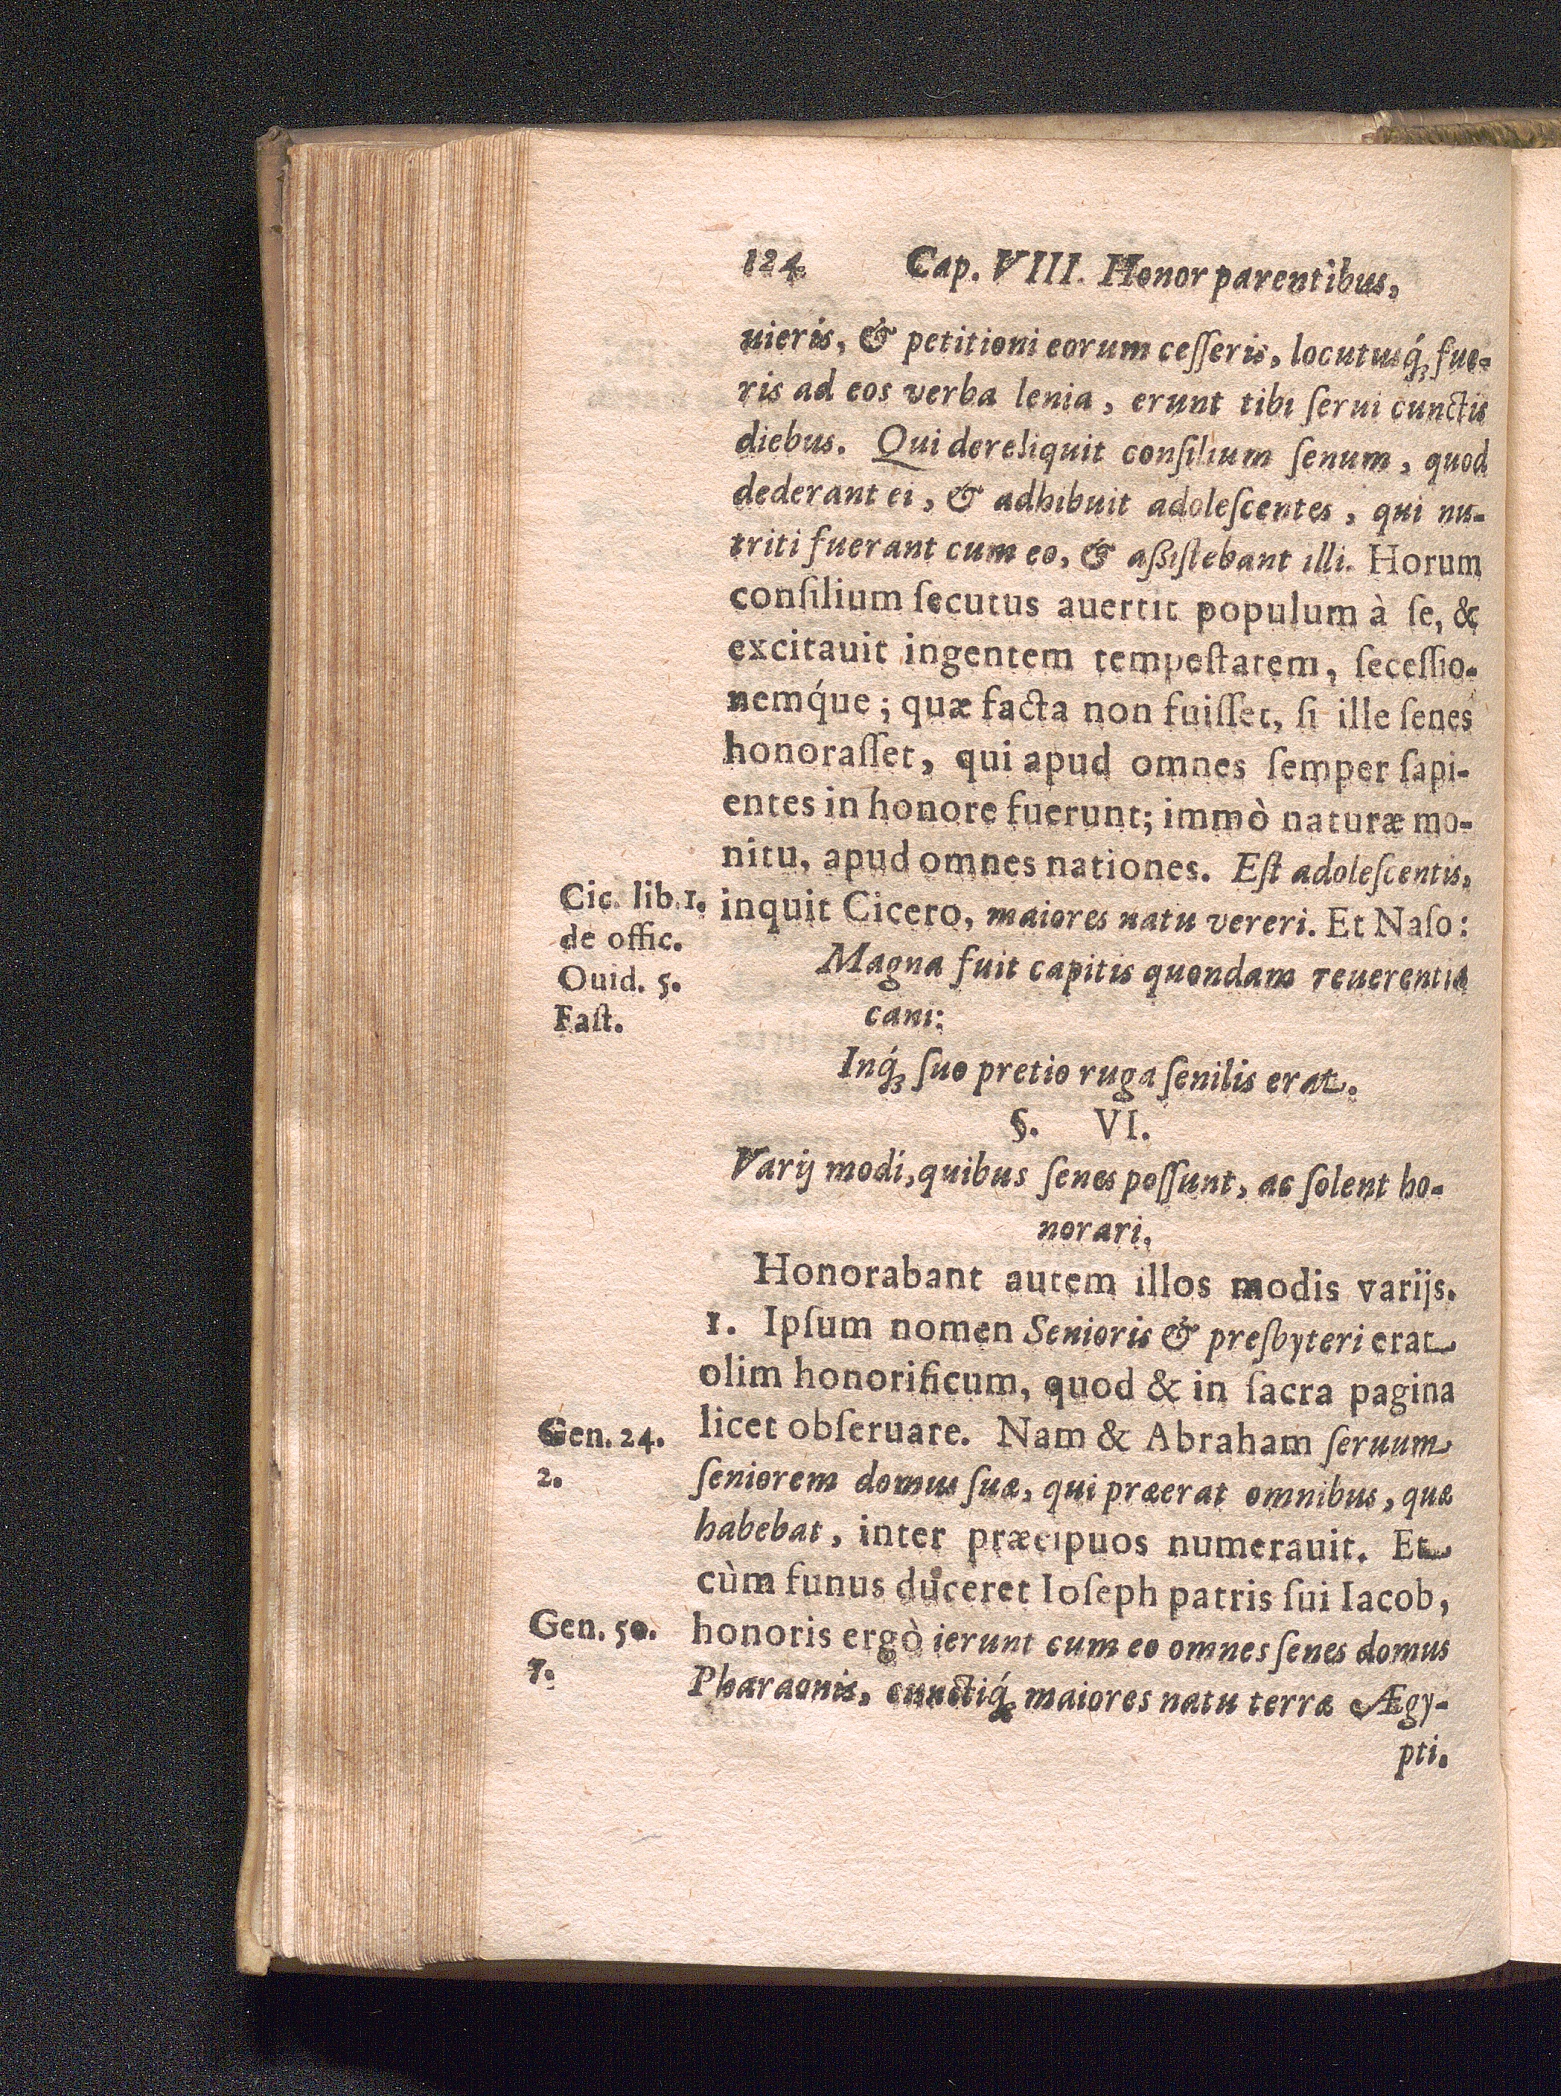 124 Cap. VIII. Honor parentibus,
uieris, & petitioni eorum ceſſeris, locutusq́ꝫ fue-
ris ad eos verba lenia, erunt tibi ſerui cunctis
diebus. Qui dereliquit conſilium ſenum, quod
dederant ei, & adhibuit adoleſcentes, qui nu-
triti fuerant cum eo, & aßiſtebant illi. Horum
conſilium ſecutus auertit populum à ſe, &
excitauit ingentem tempeſtatem, ſeceſſio-
nemq́ue; quæ facta non fuiſſet, ſi ille ſenes
honoraſſet, qui apud omnes ſemper ſapi-
entes in honore fuerunt; immò naturæ mo-
nitu, apud omnes nationes. Eſt adoleſcentis,
Cic. lib. 1.
de offic.
inquit Cicero, maiores natu vereri. Et Naſo:
Ouid. 5.
Faſt.
Magna fuit capitis quondam reuerentia
cani:
Inq́ꝫ ſuo pretio ruga ſenilis erat.
§. VI.
Varij modi, quibus ſenes poſſunt, ac ſolent ho-
norari.
Honorabant autem illos modis varijs.
1. Ipſum nomen Senioris & preſbyteri erat
olim honorificum, quod & in ſacra pagina
Gen. 24.
2.
licet obſeruare. Nam & Abraham ſeruum
ſeniorem domus ſuæ, qui præerat omnibus, quæ
habebat, inter præcipuos numerauit. Et
cùm funus duceret Ioſeph patris ſui Iacob,
Gen. 50.
7.
honoris ergò ierunt cum eo omnes ſenes domus
Pharaonis, cunctiq́ꝫ maiores natu terræ Ægy-
pti.